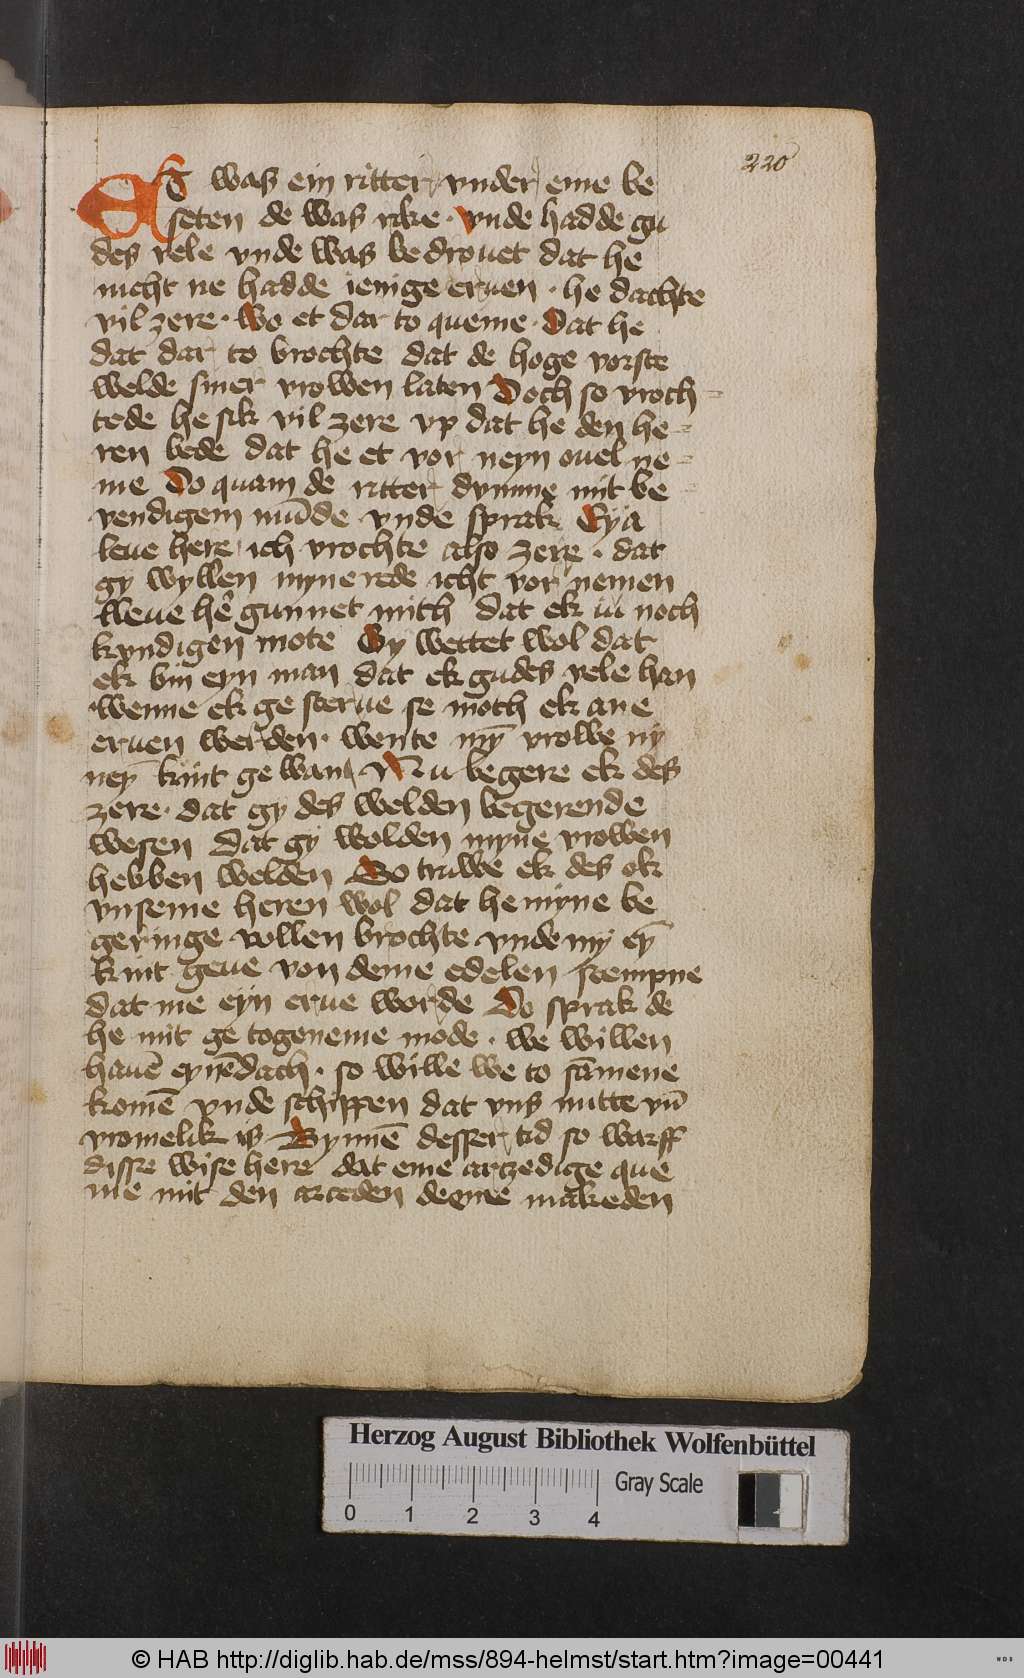 220
Et was ein ritter vnder eme be
seten de was rike · vnde hadde gu
des vele vnde was bedrouet dat he
nicht ne hadde ienige eruen · he dachte
vil zere · wo et dar to queme · Dat he
dat dar to brochte dat de hoge vorste
welde siner vrowen laten Doch so vroch-
tede he sik vil zere vp dat he den he-
ren bede dat he et vor neyn ouel ne-
me Do quam de ritter dymme mit be
vendigem mūde vnde sprak Eya
leue here ich vrochte also zere · dat
gy wyllen myne rede icht vor nemen
lleue he gunnet mith dat ek iu noch
kyndigen mote Gy wettet wol dat
ek bin eyn man dat ek gudes vele han
wenne ek ge sterue se moth ek ane
eruen werden · wente mȳ vrowe ny
neȳ kint ge wan Nu begere ek des
zere · dat gy des welden begerende
wesen dat gy wolden myne vrowen
hebben welden So truwe ek des ok
vnseme heren wol dat he myne be
geringe vollen brochte vnde my eȳ
kint geue von deme edelen stempne
dat me eyn erue worde Do sprak de
he mit ge togeneme mode · we willen
hauē eynēdach · so wille we to sāmene
komē vnde schippen dat vns nutte vn̄
vromelik is Bynnē desser tid so warff
disse wise here dat eme arczedige que
me mit den arceden deme makeden
Herzog August Bibliothek Wolfenbüttel
Gray Scale
0 1 2 3 4
© HAB http://diglib.hab.de/mss/894-helmst/start.htm?image=00441